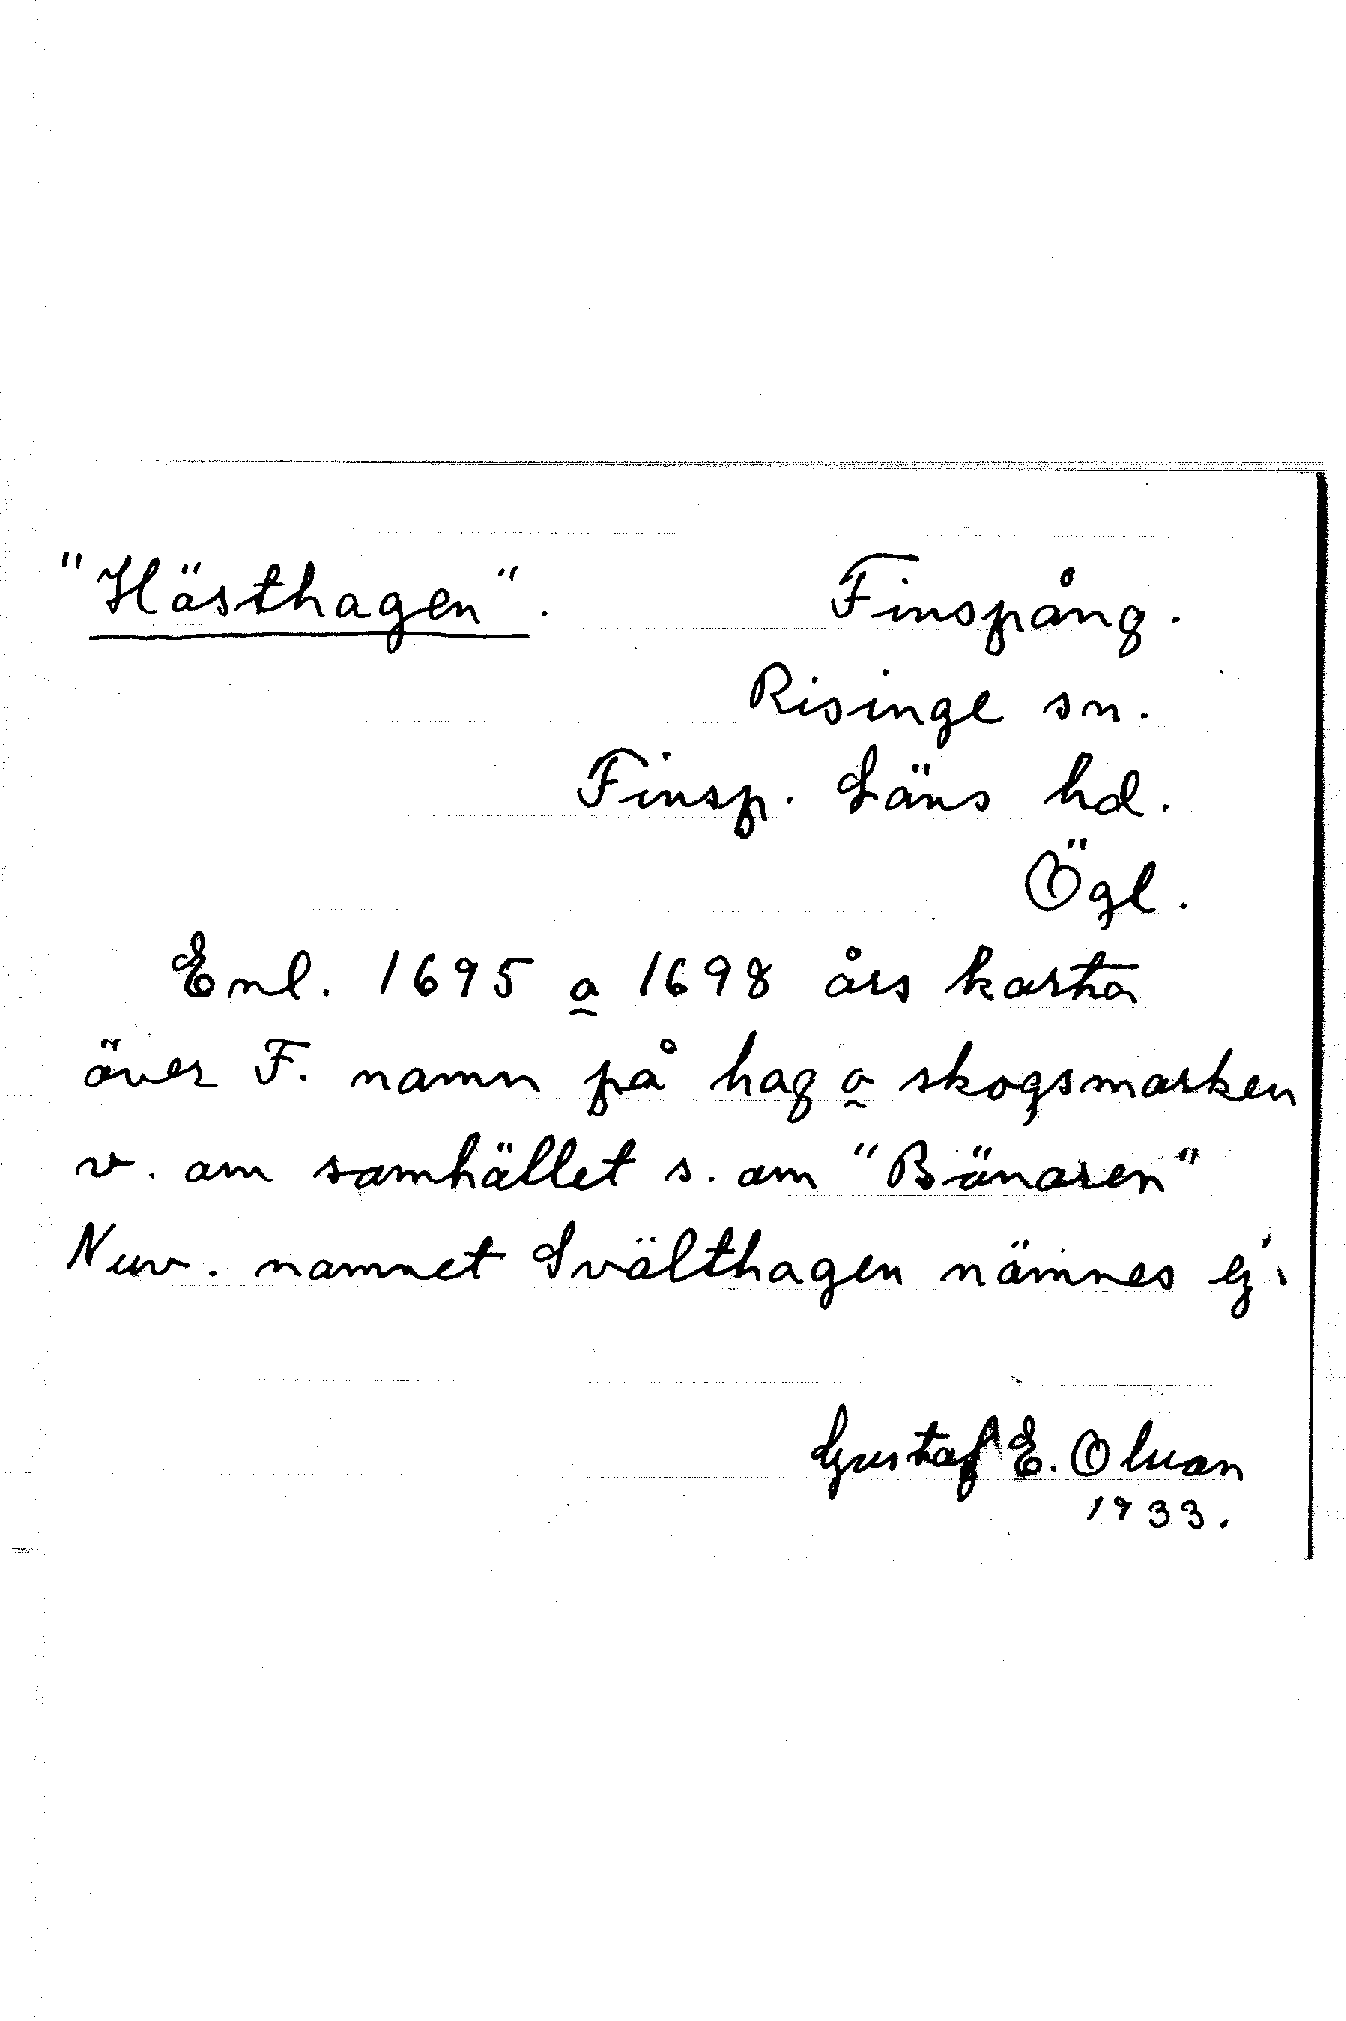 "Hästhagen". Finspång.
Risinge sn.
Finsp. Läns hd.
Ögl.
Enl. 1695 o 1698 års karta
över F. namn på hag o skogsmarken
v. om samhället s. om "Bönaren"
Nuv. namnet Svälthagen nämnes ej.
Gustaf E. Olsson
1933.